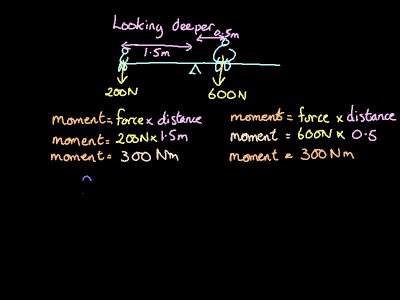 Looking deeper
0.5m
1.5m
200N
600N
moment = force x distance
moment = 200N x 1.5m
moment = 300Nm
moment = force x distance
moment = 600N x 0.5
moment = 300Nm